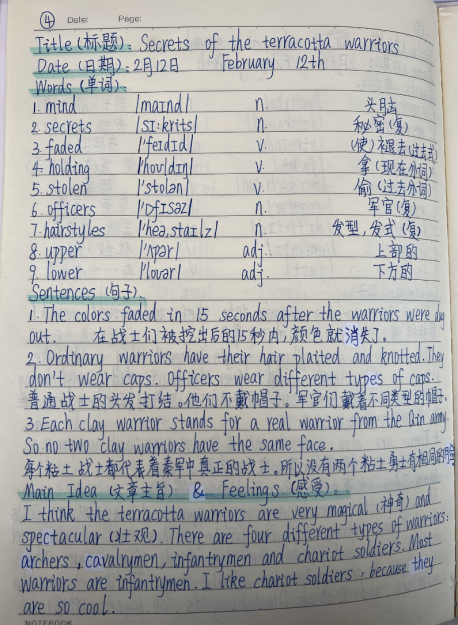 ④ Date: Page:
Title (标题): Secrets of the terracotta warriors
Date (日期): 2月12日 February 12th
Words (单词):
1. mind |maɪnd| n. 头脑
2. secrets |sɪ:krɪts| n. 秘密(复)
3. faded |'feɪdɪd| v. (使)褪去(过去式)
4. holding |'hoʊldɪn| v. 拿(现在分词)
5. stolen |'stolən| v. 偷(过去分词)
6. officers |'ɒfɪsəz| n. 军官(复)
7. hairstyles |'heə,staɪlz| n. 发型,发式(复)
8. upper |'ʌpər| adj. 上部的
9. lower |'loʊər| adj. 下方的
Sentences (句子):
1. The colors faded in 15 seconds after the warriors were dug
out. 在战士们被挖出后的15秒内,颜色就消失了。
2. Ordinary warriors have their hair plaited and knotted. They
don't wear caps. Officers wear different types of caps.
普通战士的头发打结。他们不戴帽子。军官们戴着不同类型的帽子。
3. Each clay warrior stands for a real warrior from the Qin army.
So no two clay warriors have the same face.
每个粘土战士都代表着秦军中真正的战士。所以没有两个粘土勇士有相同的
Main Idea (文章主旨) & Feelings (感受):
I think the terracotta warriors are very magical (神奇) and
spectacular (壮观). There are four different types of warriors:
archers, cavalrymen, infantrymen and chariot soldiers. Most
warriors are infantrymen. I like chariot soldiers, because they
are so cool.
NOTEBOOK